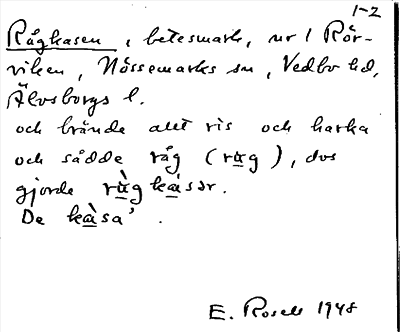 1-2
Rågkasen, betesmark, nr 1 Rör-
viken, Nössemarks sn, Vedbo hd,
Älvsborgs l.
och brände allt ris och harka
och sådde råg (ra̲g), dvs
gjorde rà̲gka̲sər.
De kà̲sa'.
E. Rosell 1948